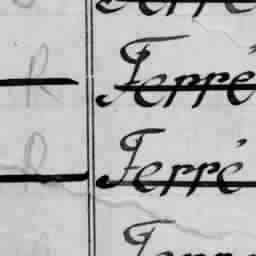 R Ferré
R Ferré